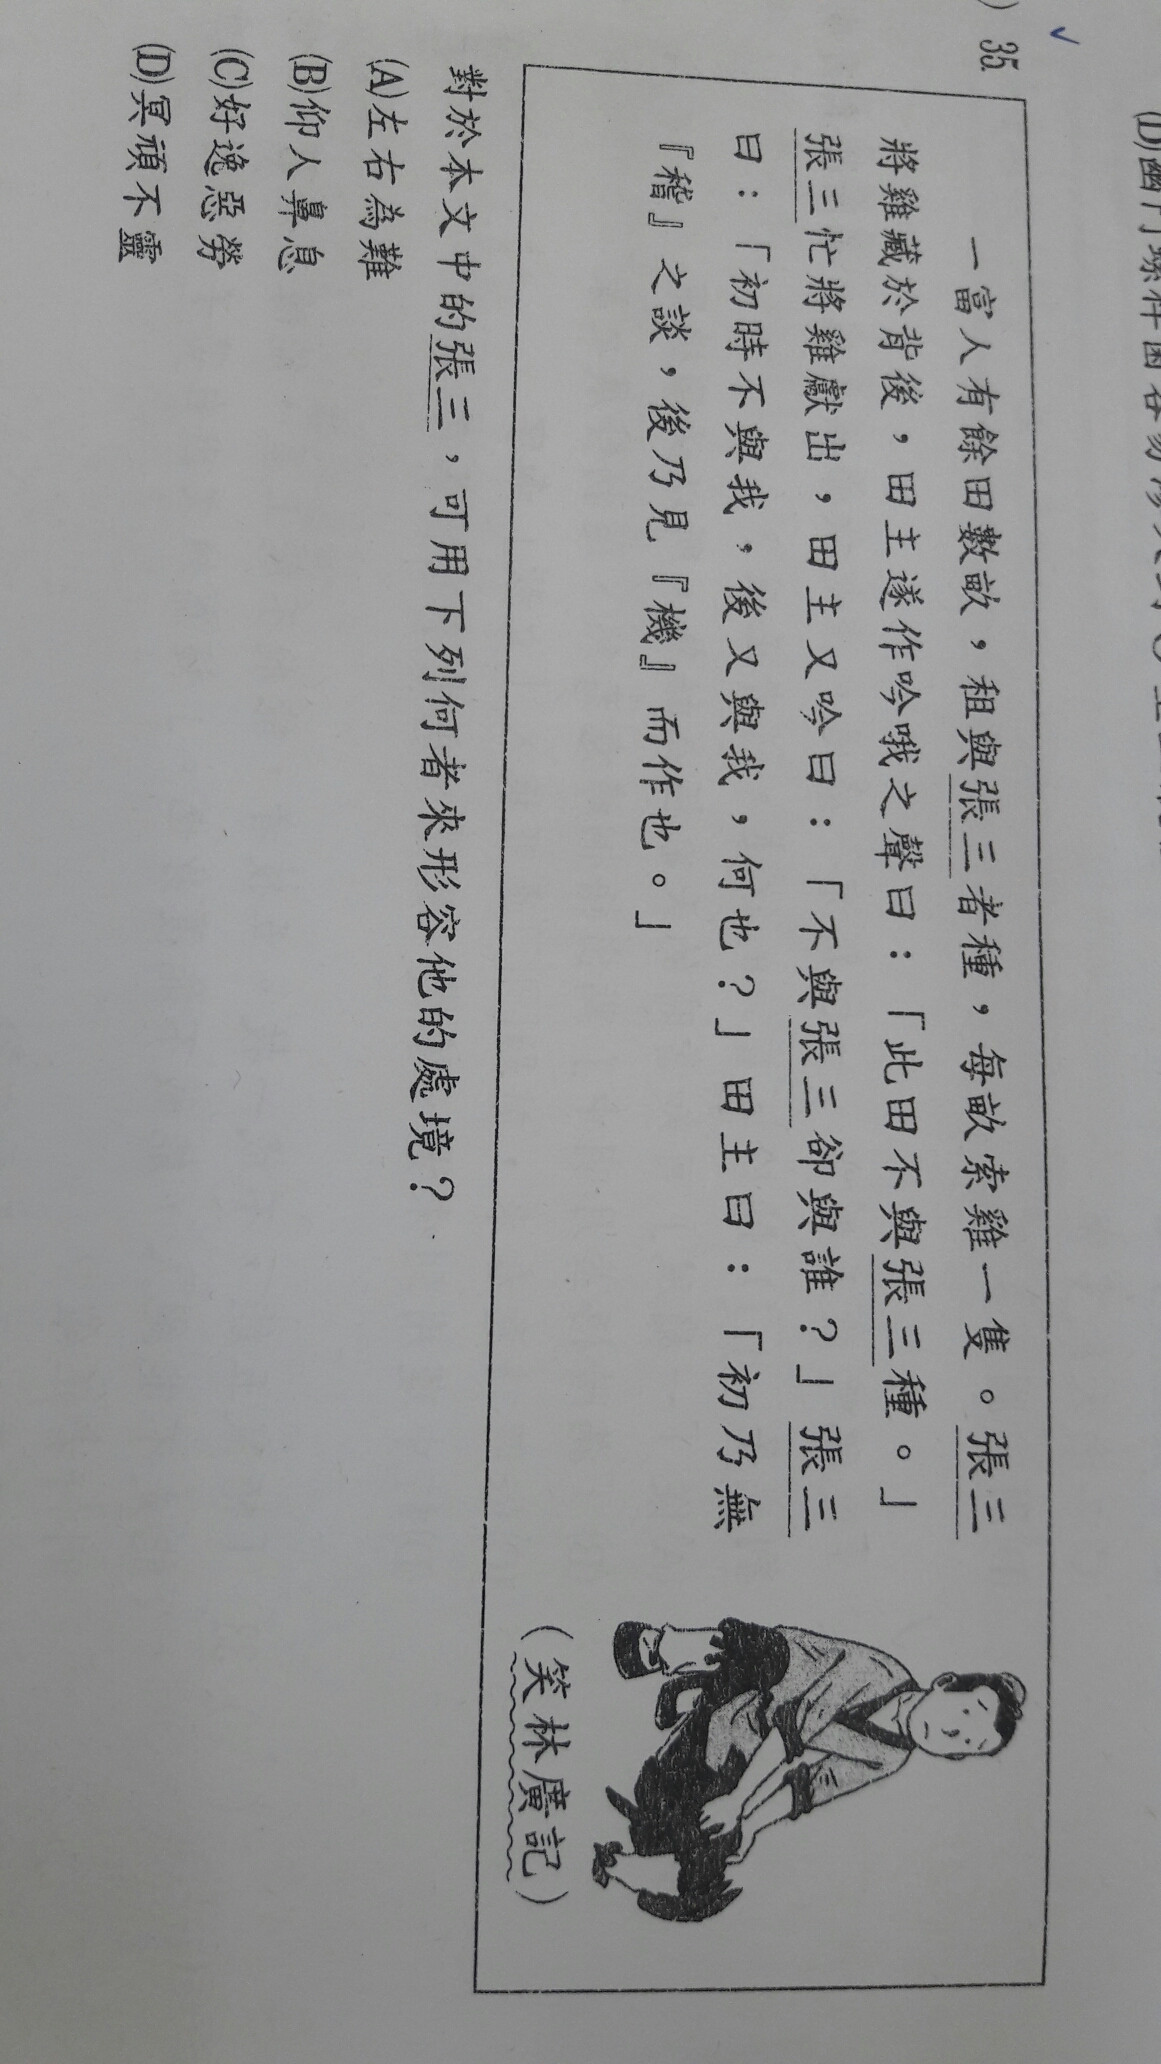 35.
一富人有餘田數畝，租與張三者種，每畝索雞一隻。張三
將雞藏於背後，田主遂作吟哦之聲曰：「此田不與張三種。」
張三忙將雞獻出，田主又吟曰：「不與張三卻與誰？」張三
曰：「初時不與我，後又與我，何也？」田主曰：「初乃無
『稽』之談，後乃見『機』而作也。」
（笑林廣記）
對於本文中的張三，可用下列何者來形容他的處境？
(A)左右為難
(B)仰人鼻息
(C)好逸惡勞
(D)冥頑不靈